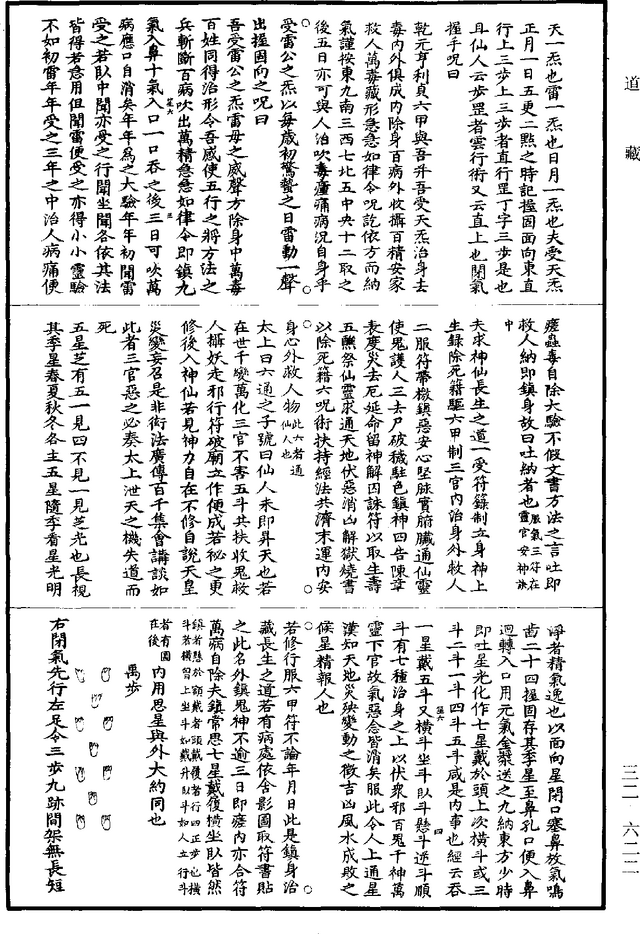 道藏
天一炁也雷一炁也日月一炁也夫受天炁
正月一日五更二點之時記握固面向東直
行上三步上三步者直行罡丁字三步是也
且仙人云步罡者雲行術又云直上也閉氣
握手呪曰
乾元亨利貞六甲與吾并吾受天炁治身去
毒內外俱成內除身百病外收攝百精安家
救人萬毒藏形急急如律令呪訖依方而納
氣謹按東九南三西七北五中央十二取之
後五日亦可與人治吹毒瘧痛病況自身乎
受雷公之炁以每歲初驚蟄之日雷動一聲
出握固向之呪曰
吾受雷公之炁雷母之威聲方除身中萬毒
百姓同得治形令吾感使五行之將方法之
兵斬斷百病吹出萬精急急如律令即鎮九
氣入鼻十氣入口一口吞之後三日可吹萬
病應口自消矣年年為之大驗年年初聞雷
受之若臥中聞亦受之行聞坐聞各依其法
皆得者急用但聞雷便受之亦得小小靈驗
不如初雷年年受之三年之中治人病痛便
瘥蟲毒自除大驗不假文書方法之言吐即
救人納即鎮身故曰吐納者也服氣三符在靈官安神訣
中
夫求神仙長生之道一受符籙制立身神上
生錄除死籍驅六甲制三官內治身外救人
二服符帶檄鎮惡安心堅脉實腑臟通仙靈
使鬼護人三去尸破穢駐色鎮神四告陳章
表度災去厄延命留神解因誅符以取生壽
五醮祭仙靈求通天地伏惡消凶解獄燒書
以除死籍六呪術扶持經法共濟末運內安
身心外救人物此六者通仙人也
太上曰六通之子號曰仙人未即昇天也若
在世千變萬化三官不害五斗共扶收鬼救
人攝妖走邪行符破廟立作便成若祕之更
修後入神仙若見神力自在不修自說天皇
災變妄召是非衒法廣傳百千集會講談如
此者三官惡之必奏太上泄天之機失道而
死
五星芝有五一見四不見一見芝光也長視
其季星春夏秋冬各主五星隨季看星光明
淨者精氣逸也以面向星閉口塞鼻放氣鳴
齒二十四握固存其季星至鼻孔口便入鼻
迴轉入口用元氣金漿送之九納東方少時
即吐星光化作七星戴於頭上次橫斗或三
斗二斗一斗四斗五斗咸是內事也經云吞
一星戴五斗又橫斗坐斗臥斗懸斗逆斗順
斗有七種治身之上以伏衆邪百鬼千神萬
靈下官故氣惡念皆消矣服此令人上通星
漢知天地災殃變動之徵吉凶風水成敗之
候星精報人也
若修行服六甲符不論年月日此是鎮身治
藏長生之道若有病處依含影圖取符書貼
之此名外鎮鬼神不逾三日即瘥內亦合符
萬病自除夫鎮常思七星戴復橫坐臥皆然
鎮者懸於額戴者頭戴復者行四正步也橫斗者橫習上坐斗如戴升臥斗如人立行斗
者有圖在後內用思星與外大約同也
禹步
右閉氣先行左足令三步九跡間架無長短
三二-六二二